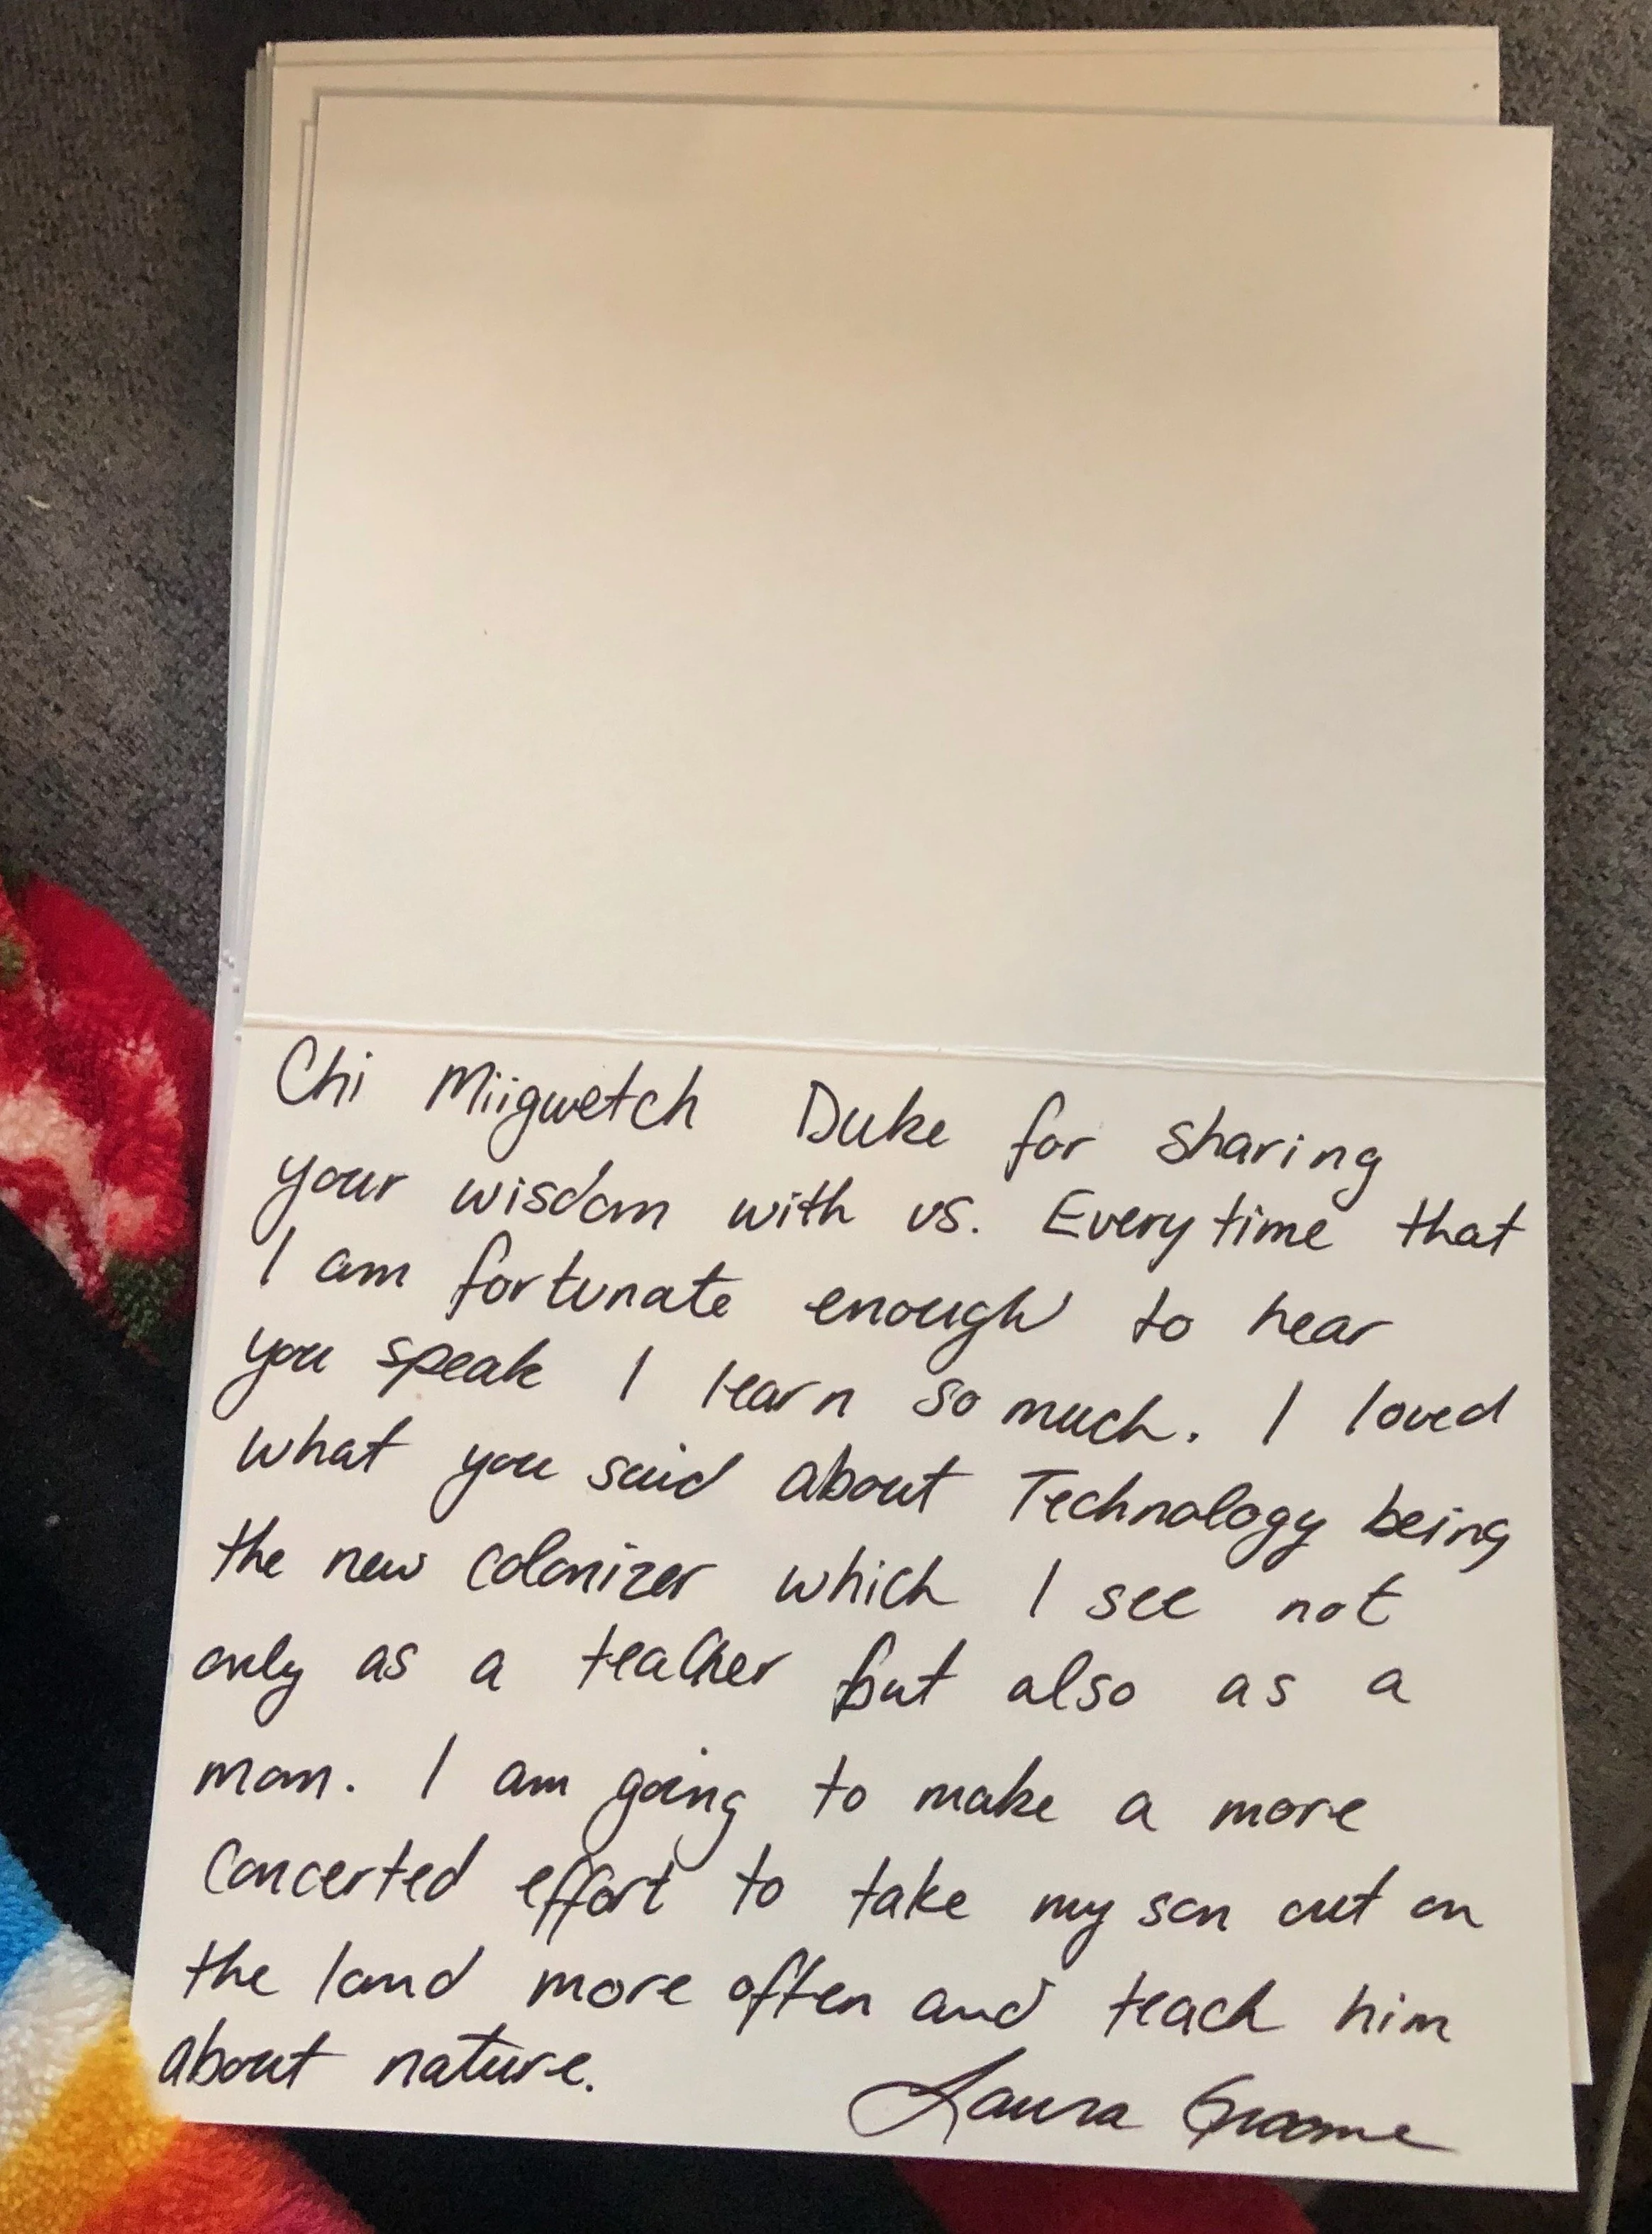 Chi Miigwetch Duke for sharing
your wisdom with us. Everytime that
I am fortunate enough to hear
you speak I learn so much. I loved
what you said about Technology being
the new colonizer which I see not
only as a teacher but also as a
mom. I am going to make a more
concerted effort to take my son out on
the land more often and teach him
about nature.
Laura Groome